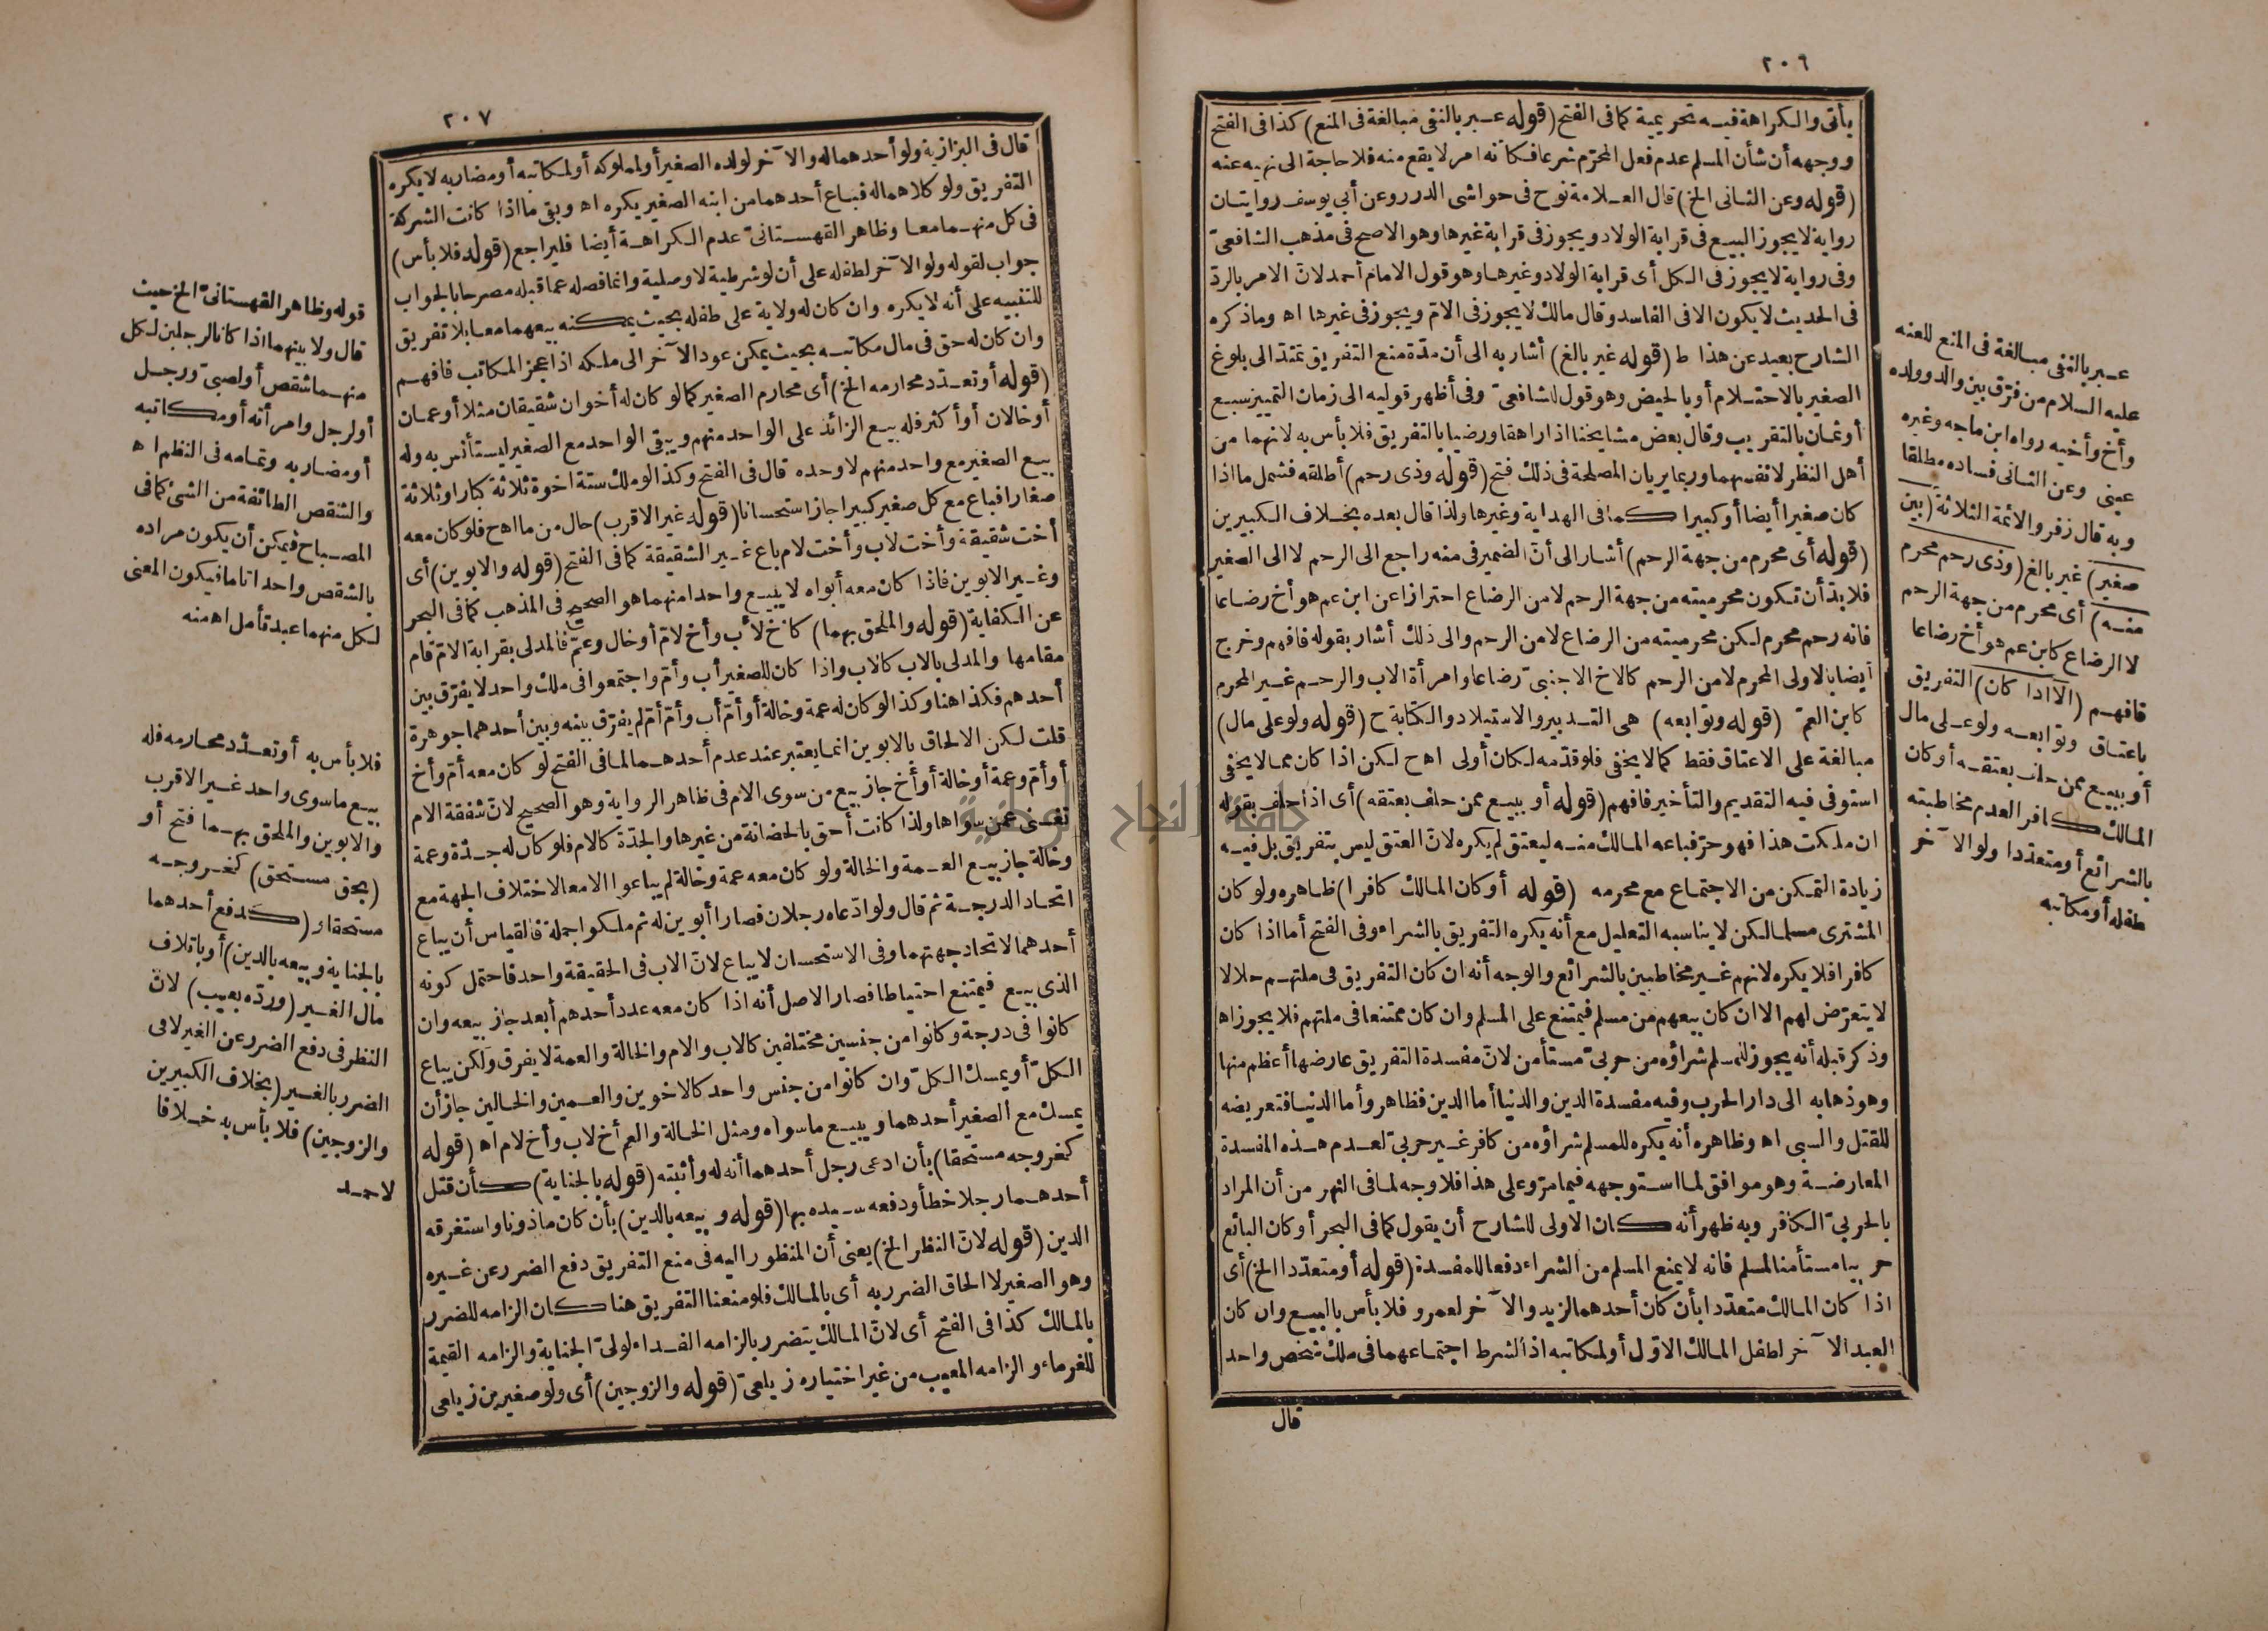 ٢٠٦
يأتى والكراهة فيه تحريمية كما فى الفتح (قوله عبر بالنفى مبالغة فى المنع) كذا فى الفتح
ووجهه أن شأن المسلم عدم فعل المحرّم شرعا فكأنه امر لا يقع منه فلا حاجة الى نهيه عنه
(قوله وعن الثانى الخ) قال العلامة نوح فى حواشى الدرر وعن أبى يوسف روايتان
رواية لا يجوز البيع فى قرابة الولاد ويجوز فى قرابة غيرها وهو الاصح فى مذهب الشافعىّ
وفى رواية لا يجوز فى الكل أى قرابة الولاد وغيرها وهو قول الامام أحمد لانّ الامر بالردّ
فى الحديث لا يكون الا فى الفاسد وقال مالك لا يجوز فى الامّ ويجوز فى غيرها اه وما ذكره
الشارح بعيد عن هذا ط (قوله غير بالغ) أشار به الى أن مدّة منع التفريق تمتدّ الى بلوغ
الصغير بالاحتلام أو بالحيض وهو قول للشافعىّ وفى أظهر قوليه الى زمان التمييز سبع
أو ثمان بالتقريب وقال بعض مشايخنا اذا راهقا ورضيا بالتفريق فلا بأس به لانهما من
أهل النظر لانفسهما وربما يريان المصلحة فى ذلك فتح (قوله وذى رحم) أطلقه فشمل ما اذا
كان صغيرا أيضا أو كبيرا كما فى الهداية وغيرها ولذا قال بعده بخلاف الكبيرين
(قوله أى محرم من جهة الرحم) أشار الى أنّ الضمير فى منه راجع الى الرحم لا الى الصغير
فلا بدّ أن تكون محرميته من جهة الرحم لا من الرضاع احترازا عن ابن عم هو أخ رضاعا
فانه رحم محرم لكن محرميته من الرضاع لا من الرحم والى ذلك أشار بقوله فافهم وخرج
أيضا بالاولى المحرم لا من الرحم كالاخ الاجنبىّ رضاعا وامرأة الاب والرحم غير المحرم
كابن العمّ (قوله وتوابعه) هى التدبير والاستيلاد والكتابة ح (قوله ولو على مال)
مبالغة على الاعتاق فقط كما لا يخفى فلو قدّمه لكان أولى اه ح لكن اذا كان مما لا يخفى
استوفى فيه التقديم والتأخير فافهم (قوله أو ببيع ممن حلف بعتقه) أى اذا حلف بقوله
ان ملكت هذا فهو حرّ فباعه المالك منه ليعتق لم يكره لانّ العتق ليس بتفريق بل فيه
زيادة التمكن من الاجتماع مع محرمه (قوله أو كان المالك كافرا) ظاهره ولو كان
المشترى مسلما لكن لا يناسبه التعليل مع أنه يكره التفريق بالشراء وفى الفتح أما اذا كان
كافرا فلا يكره لانهم غير مخاطبين بالشرائع والوجه أنه ان كان التفريق فى ملتهم حلالا
لا يتعرّض لهم الا ان كان بيعهم من مسلم فيمتنع على المسلم وان كان ممتنعا فى ملتهم فلا يجوز اه
وذكر قبله أنه يجوز للمسلم شراؤه من حربىّ مستأمن لانّ مفسدة التفريق عارضها أعظم منها
وهو ذهابه الى دار الحرب وفيه مفسدة الدين والدنيا أما الدين فظاهر وأما الدنيا فتعريضه
للقتل والسبى اه وظاهره أنه يكره للمسلم شراؤه من كافر غير حربىّ لعدم هذه المفسدة
المعارضة وهو موافق لما استوجهه فيما مرّ وعلى هذا فلا وجه لما فى النهر من أن المراد
بالحربىّ الكافر وبه ظهر أنه كان الاولى للشارح أن يقول كما فى البحر أو كان البائع
حربيا مستأمنا لمسلم فانه لا يمنع المسلم من الشراء دفعا للمفسدة (قوله أو متعدّدا الخ) أى
اذا كان المالك متعدّدا بأن كان أحدهما لزيد والآخر لعمرو فلا بأس بالبيع وان كان
العبد الآخر لطفل المالك الاوّل أو لمكاتبه اذ الشرط اجتماعهما فى ملك شخص واحد
قال
عبر بالنفى مبالغة فى المنع للعنه
عليه السلام من فرّق بين والد وولده
وأخ وأخيه رواه ابن ماجه وغيره
عينى وعن الثانى فساده مطلقا
وبه قال زفر والائمة الثلاثة (بين
صغير) غير بالغ (وذى رحم محرم
منه) أى محرم من جهة الرحم
لا الرضاع كابن عم هو أخ رضاعا
فافهم (الا اذا كان) التفريق
باعتاق وتوابعه ولو على مال
أو ببيع ممن حلف بعتقه أو كان
المالك كافرا لعدم مخاطبته
بالشرائع أو متعددا ولو الآخر
طفله أو مكاتبه
٢٠٧
قال فى البزازية ولو أحدهما له والآخر لولده الصغير أو لمملوكه أو لمكاتبه أو مضاربه لا يكره
التفريق ولو كلاهما له فباع أحدهما من ابنه الصغير يكره اه وبقى ما اذا كانت الشركة
فى كل منهما معا وظاهر القهستانىّ عدم الكراهة أيضا فليراجع (قوله فلا بأس)
جواب لقوله ولو الآخر لطفله على أن لو شرطية لا وصلية وانما فصله عما قبله مصرحا بالجواب
للتنبيه على أنه لا يكره وان كان له ولاية على طفله بحيث يمكنه بيعهما معا بلا تفريق
وان كان له حق فى مال مكاتبه بحيث يمكن عود الآخر الى ملكه اذا عجز المكاتب فافهم
(قوله أو تعدّد محارمه الخ) أى محارم الصغير كما لو كان له أخوان شقيقان مثلا أو عمان
أو خالان أو أكثر فله بيع الزائد على الواحد منهم ويبقى الواحد مع الصغير ليستأنس به وله
بيع الصغير مع واحد منهم لا وحده قال فى الفتح وكذا لو ملك ستة اخوة ثلاثة كبارا وثلاثة
صغارا فباع مع كل صغير كبيرا جاز استحسانا (قوله غير الاقرب) حال من ما اه ح فلو كان معه
أخت شقيقة وأخت لاب وأخت لام باع غير الشقيقة كما فى الفتح (قوله والابوين) أى
وغير الابوين فاذا كان معه أبواه لا يبيع واحدا منهما هو الصحيح فى المذهب كما فى البحر
عن الكفاية (قوله والملحق بهما) كأخ لأب وأخ لامّ أو خال وعمّ فالمدلى بقرابة الامّ قام
مقامها والمدلى بالاب كالاب واذا كان للصغير أب وأمّ واجتمعوا فى ملك واحد لا يفرّق بين
أحدهم فكذا هنا وكذا لو كان له عمة وخالة أو أمّ أب وأمّ أمّ لم يفرّق بينه وبين أحدهما جوهرة
قلت لكن الالحاق بالابوين انما يعتبر عند عدم أحدهما لما فى الفتح لو كان معه أمّ وأخ
أو أمّ وعمة أو خالة أو أخ جاز بيع من سوى الام فى ظاهر الرواية وهو الصحيح لانّ شفقة الام
تغنى عمن سواها ولذا كانت أحق بالحضانة من غيرها والجدّة كالام فلو كان له جدّة وعمة
وخالة جاز بيع العمة والخالة ولو كان معه عمة وخالة لم يباعوا الا معا لاختلاف الجهة مع
اتحاد الدرجة ثم قال ولو ادّعاه رجلان فصارا أبوين له ثم ملكوا جملة فالقياس أن يباع
أحدهما لاتحاد جهتهما وفى الاستحسان لا يباع لانّ الاب فى الحقيقة واحد فاحتمل كونه
الذى بيع فيمتنع احتياطا فصار الاصل أنه اذا كان معه عدد أحدهم أبعد جاز بيعه وان
كانوا فى درجة وكانوا من جنسين مختلفين كالاب والام والخالة والعمة لا يفرق ولكن يباع
الكلّ أو يمسك الكلّ وان كانوا من جنس واحد كالاخوين والعمين والخالين جاز أن
يمسك مع الصغير أحدهما ويبيع ما سواه ومثل الخالة والعم أخ لاب وأخ لام اه (قوله
كخروجه مستحقا) بأن ادعى رجل أحدهما أنه له وأثبته (قوله بالجناية) كأن قتل
أحدهما رجلا خطأ ودفعه سيده بها (قوله وبيعه بالدين) بأن كان مأذونا واستغرقه
الدين (قوله لانّ النظر الخ) يعنى أن المنظور اليه فى منع التفريق دفع الضرر عن غيره
وهو الصغير لا الحاق الضرر به أى بالمالك فلو منعنا التفريق هنا كان الزامه للضرر
بالمالك كذا فى الفتح أى لانّ المالك يتضرر بالزامه الفداء لولىّ الجناية والزامه القيمة
للغرماء والزامه المعيب من غير اختياره زيلعىّ (قوله والزوجين) أى ولو صغيرين زيلعى
قوله وظاهر القهستانىّ الخ حيث
قال ولا بينهما اذا كانا لرجلين لكل
منهما شقص أو لصبىّ ورجل
أو لرجل وامرأته أو مكاتبه
أو مضاربه وتمامه فى النظم اه
والشقص الطائفة من الشئ كما فى
المصباح فيمكن أن يكون مراده
بالشقص واحدا تاما فيكون المعنى
لكل منهما عبد تأمل اه منه
فلا بأس به أو تعدّد محارمه فله
بيع ما سوى واحد غير الاقرب
والابوين والملحق بهما فتح أو
(بحق مستحق) كخروجه
مستحقا و (كدفع أحدهما
بالجناية وبيعه بالدين) أو باتلاف
مال الغير (وردّه بعيب) لانّ
النظر فى دفع الضرر عن الغير لا فى
الضرر بالغير (بخلاف الكبيرين
والزوجين) فلا بأس به خلافا
لاحمد
جامعة النجاح الوطنية